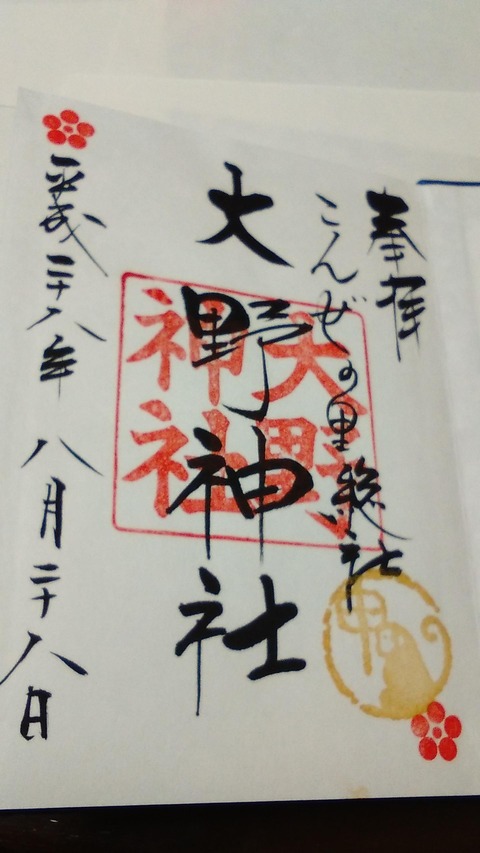 奉拝
こんぜの里総社
大野神社
大野
神社
申
平成二十八年 八月二十八日